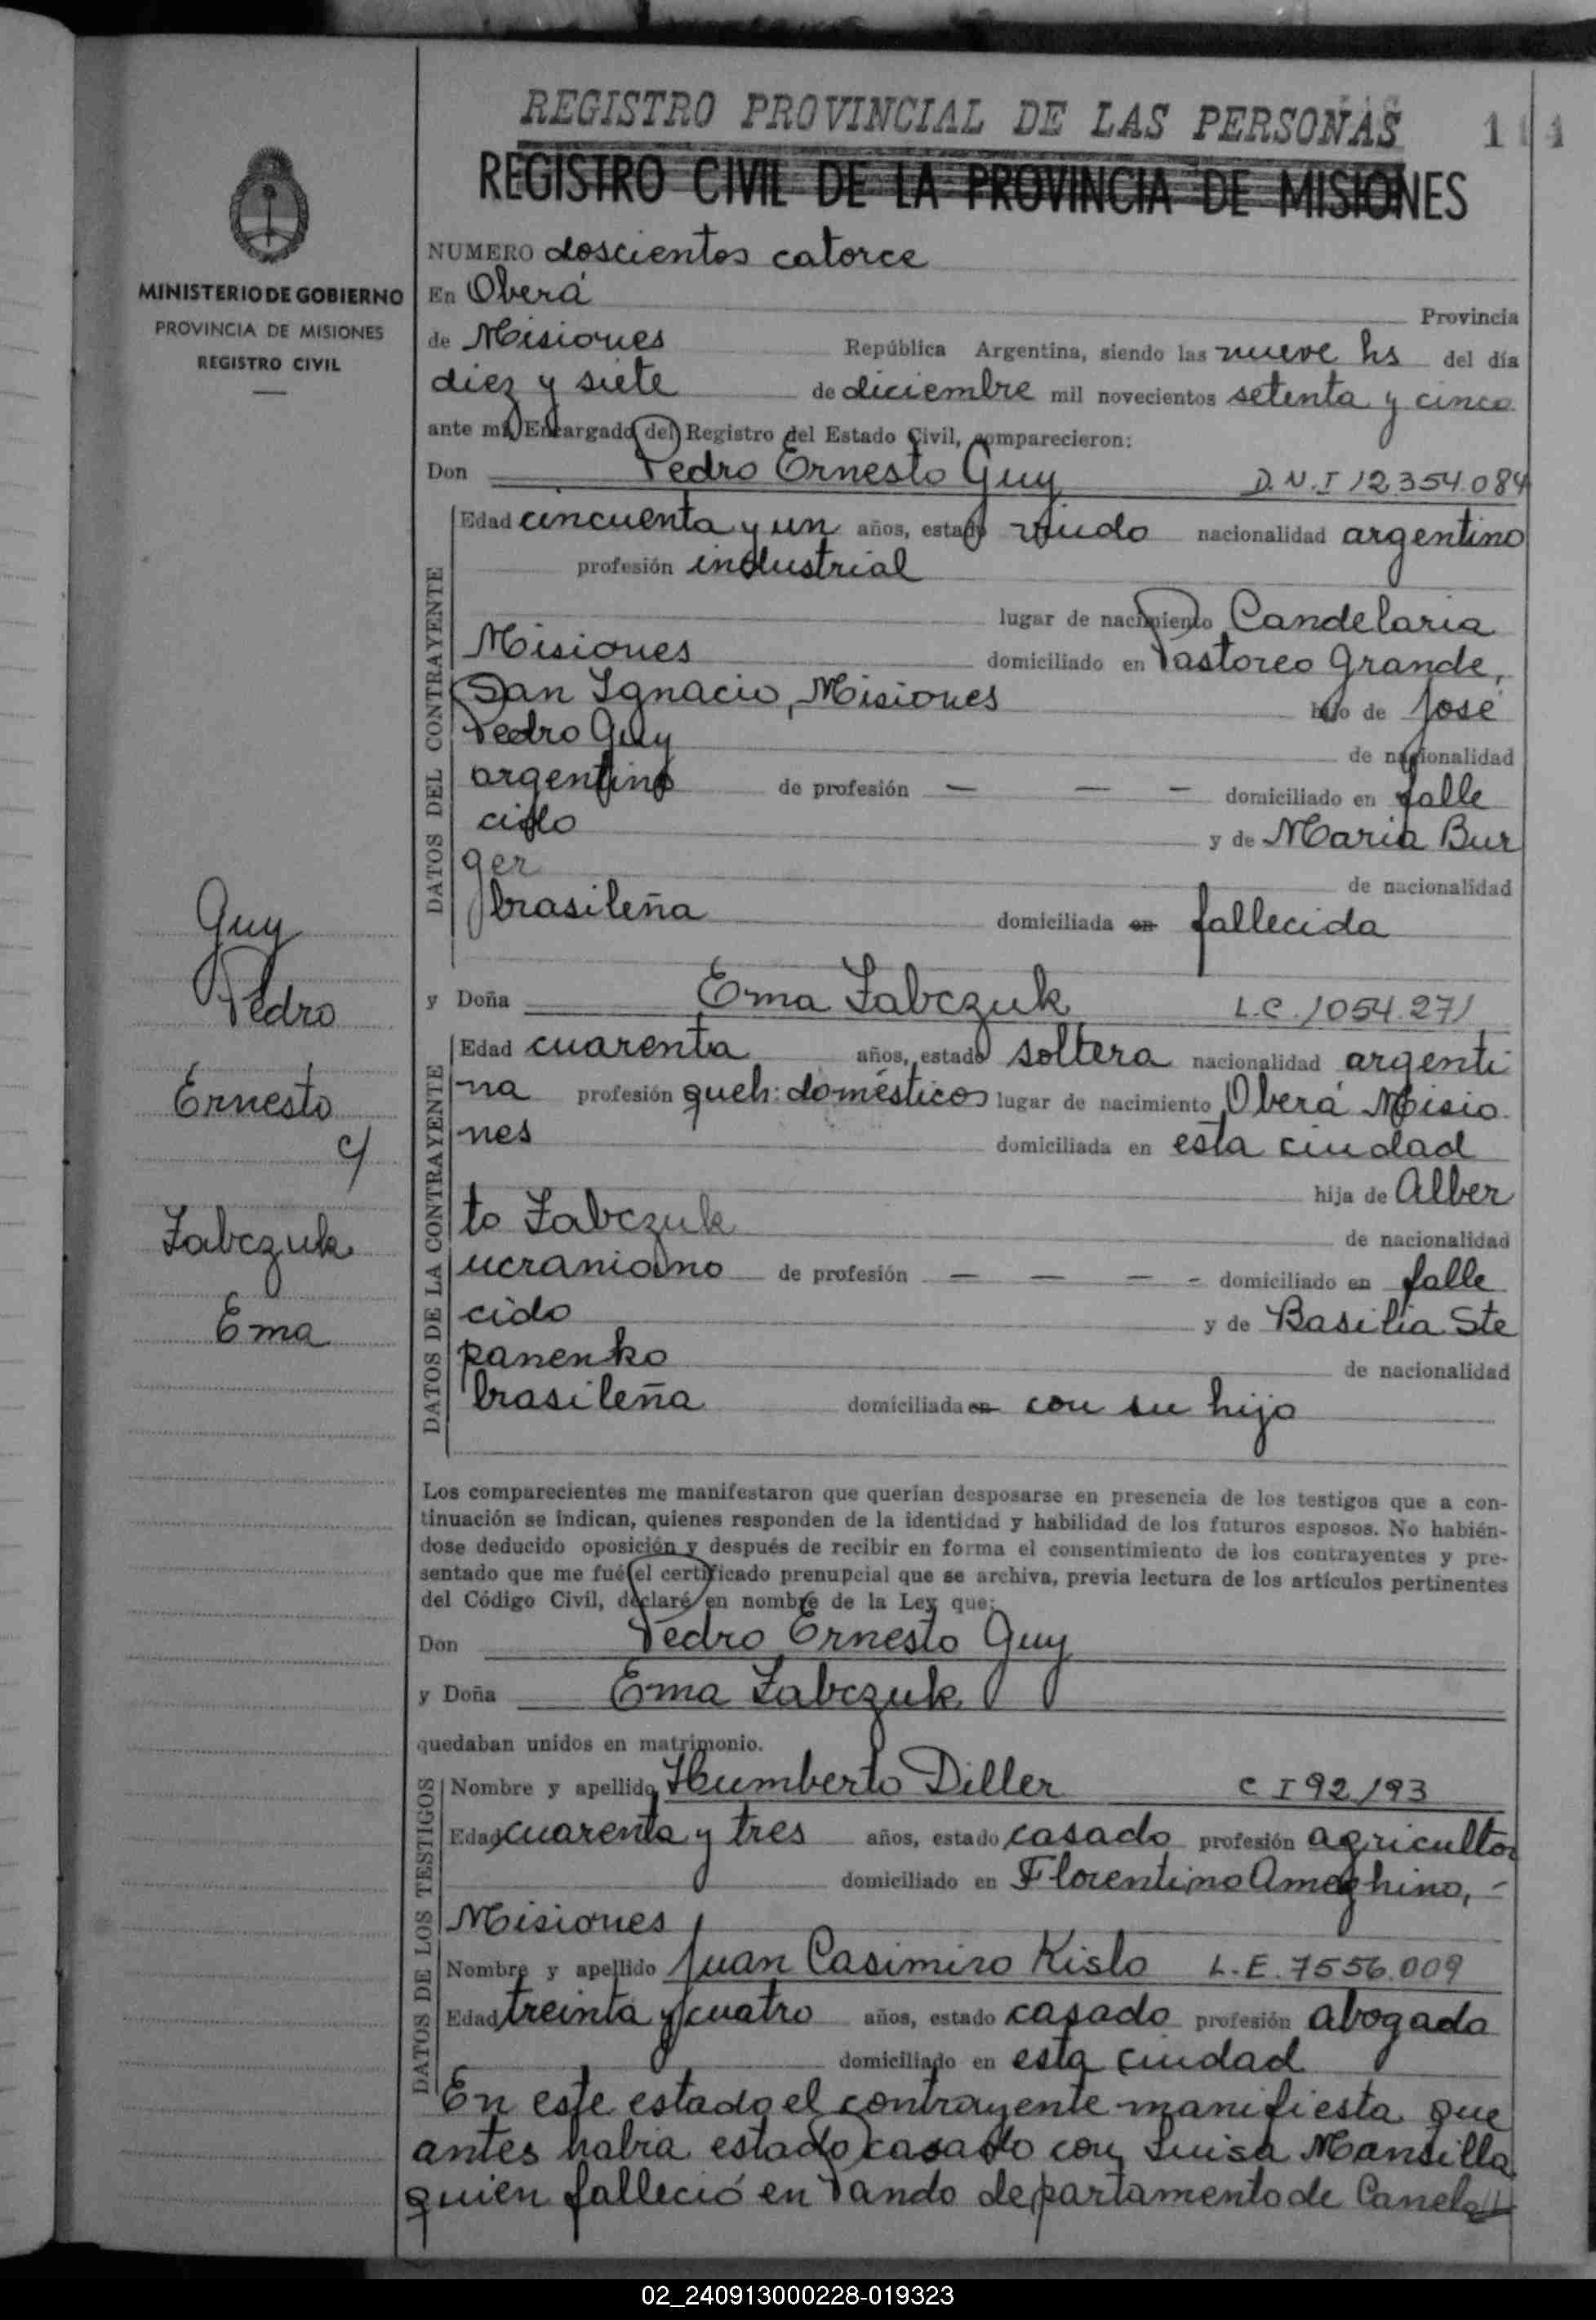 REGISTRO PROVINCIAL DE LAS PERSONAS
REGISTRO CIVIL DE LA PROVINCIA DE MISIONES
MINISTERIO DE GOBIERNO
PROVINCIA DE MISIONES
REGISTRO CIVIL
NUMERO doscientos catorce
En Oberá Provincia
de Misiones República Argentina, siendo las nueve hs del día
diez y siete de diciembre mil novecientos setenta y cinco
ante mí, Encargado del Registro del Estado Civil, comparecieron:
Don Pedro Ernesto Guy D.N.I 12.354.084
DATOS DEL CONTRAYENTE
Edad cincuenta y un años, estado viudo nacionalidad argentino
profesión industrial
lugar de nacimiento Candelaria
Misiones domiciliado en Pastoreo Grande,
San Ignacio, Misiones hijo de José
Pedro Guy de nacionalidad
argentino de profesión — — — domiciliado en falle
cido y de Maria Bur
ger de nacionalidad
brasileña domiciliada en fallecida
Guy
Pedro
Ernesto
c/
Zabczuk
Ema
y Doña Ema Zabczuk L.C. 1054.271
DATOS DE LA CONTRAYENTE
Edad cuarenta años, estado soltera nacionalidad argenti
na profesión queh: domésticos lugar de nacimiento Oberá Misio
nes domiciliada en esta ciudad
hija de Alber
to Zabczuk de nacionalidad
ucraniano de profesión — — — - domiciliado en falle
cido y de Basilia Ste
panenko de nacionalidad
brasileña domiciliada en con su hijo
Los comparecientes me manifestaron que querían desposarse en presencia de los testigos que a con-
tinuación se indican, quienes responden de la identidad y habilidad de los futuros esposos. No habién-
dose deducido oposición y después de recibir en forma el consentimiento de los contrayentes y pre-
sentado que me fué el certificado prenupcial que se archiva, previa lectura de los artículos pertinentes
del Código Civil, declaré en nombre de la Ley que:
Don Pedro Ernesto Guy
y Doña Ema Zabczuk
quedaban unidos en matrimonio.
DATOS DE LOS TESTIGOS
Nombre y apellido Humberto Diller C I 92193
Edad cuarenta y tres años, estado casado profesión agricultor
domiciliado en Florentino Ameghino, -
Misiones
Nombre y apellido Juan Casimiro Kislo L.E. 7556.009
Edad treinta y cuatro años, estado casado profesión abogado
domiciliado en esta ciudad
En este estado el contrayente manifiesta que
antes habia estado casado con Luisa Mansilla
quien falleció en Pando departamento de
02_240913000228-019323